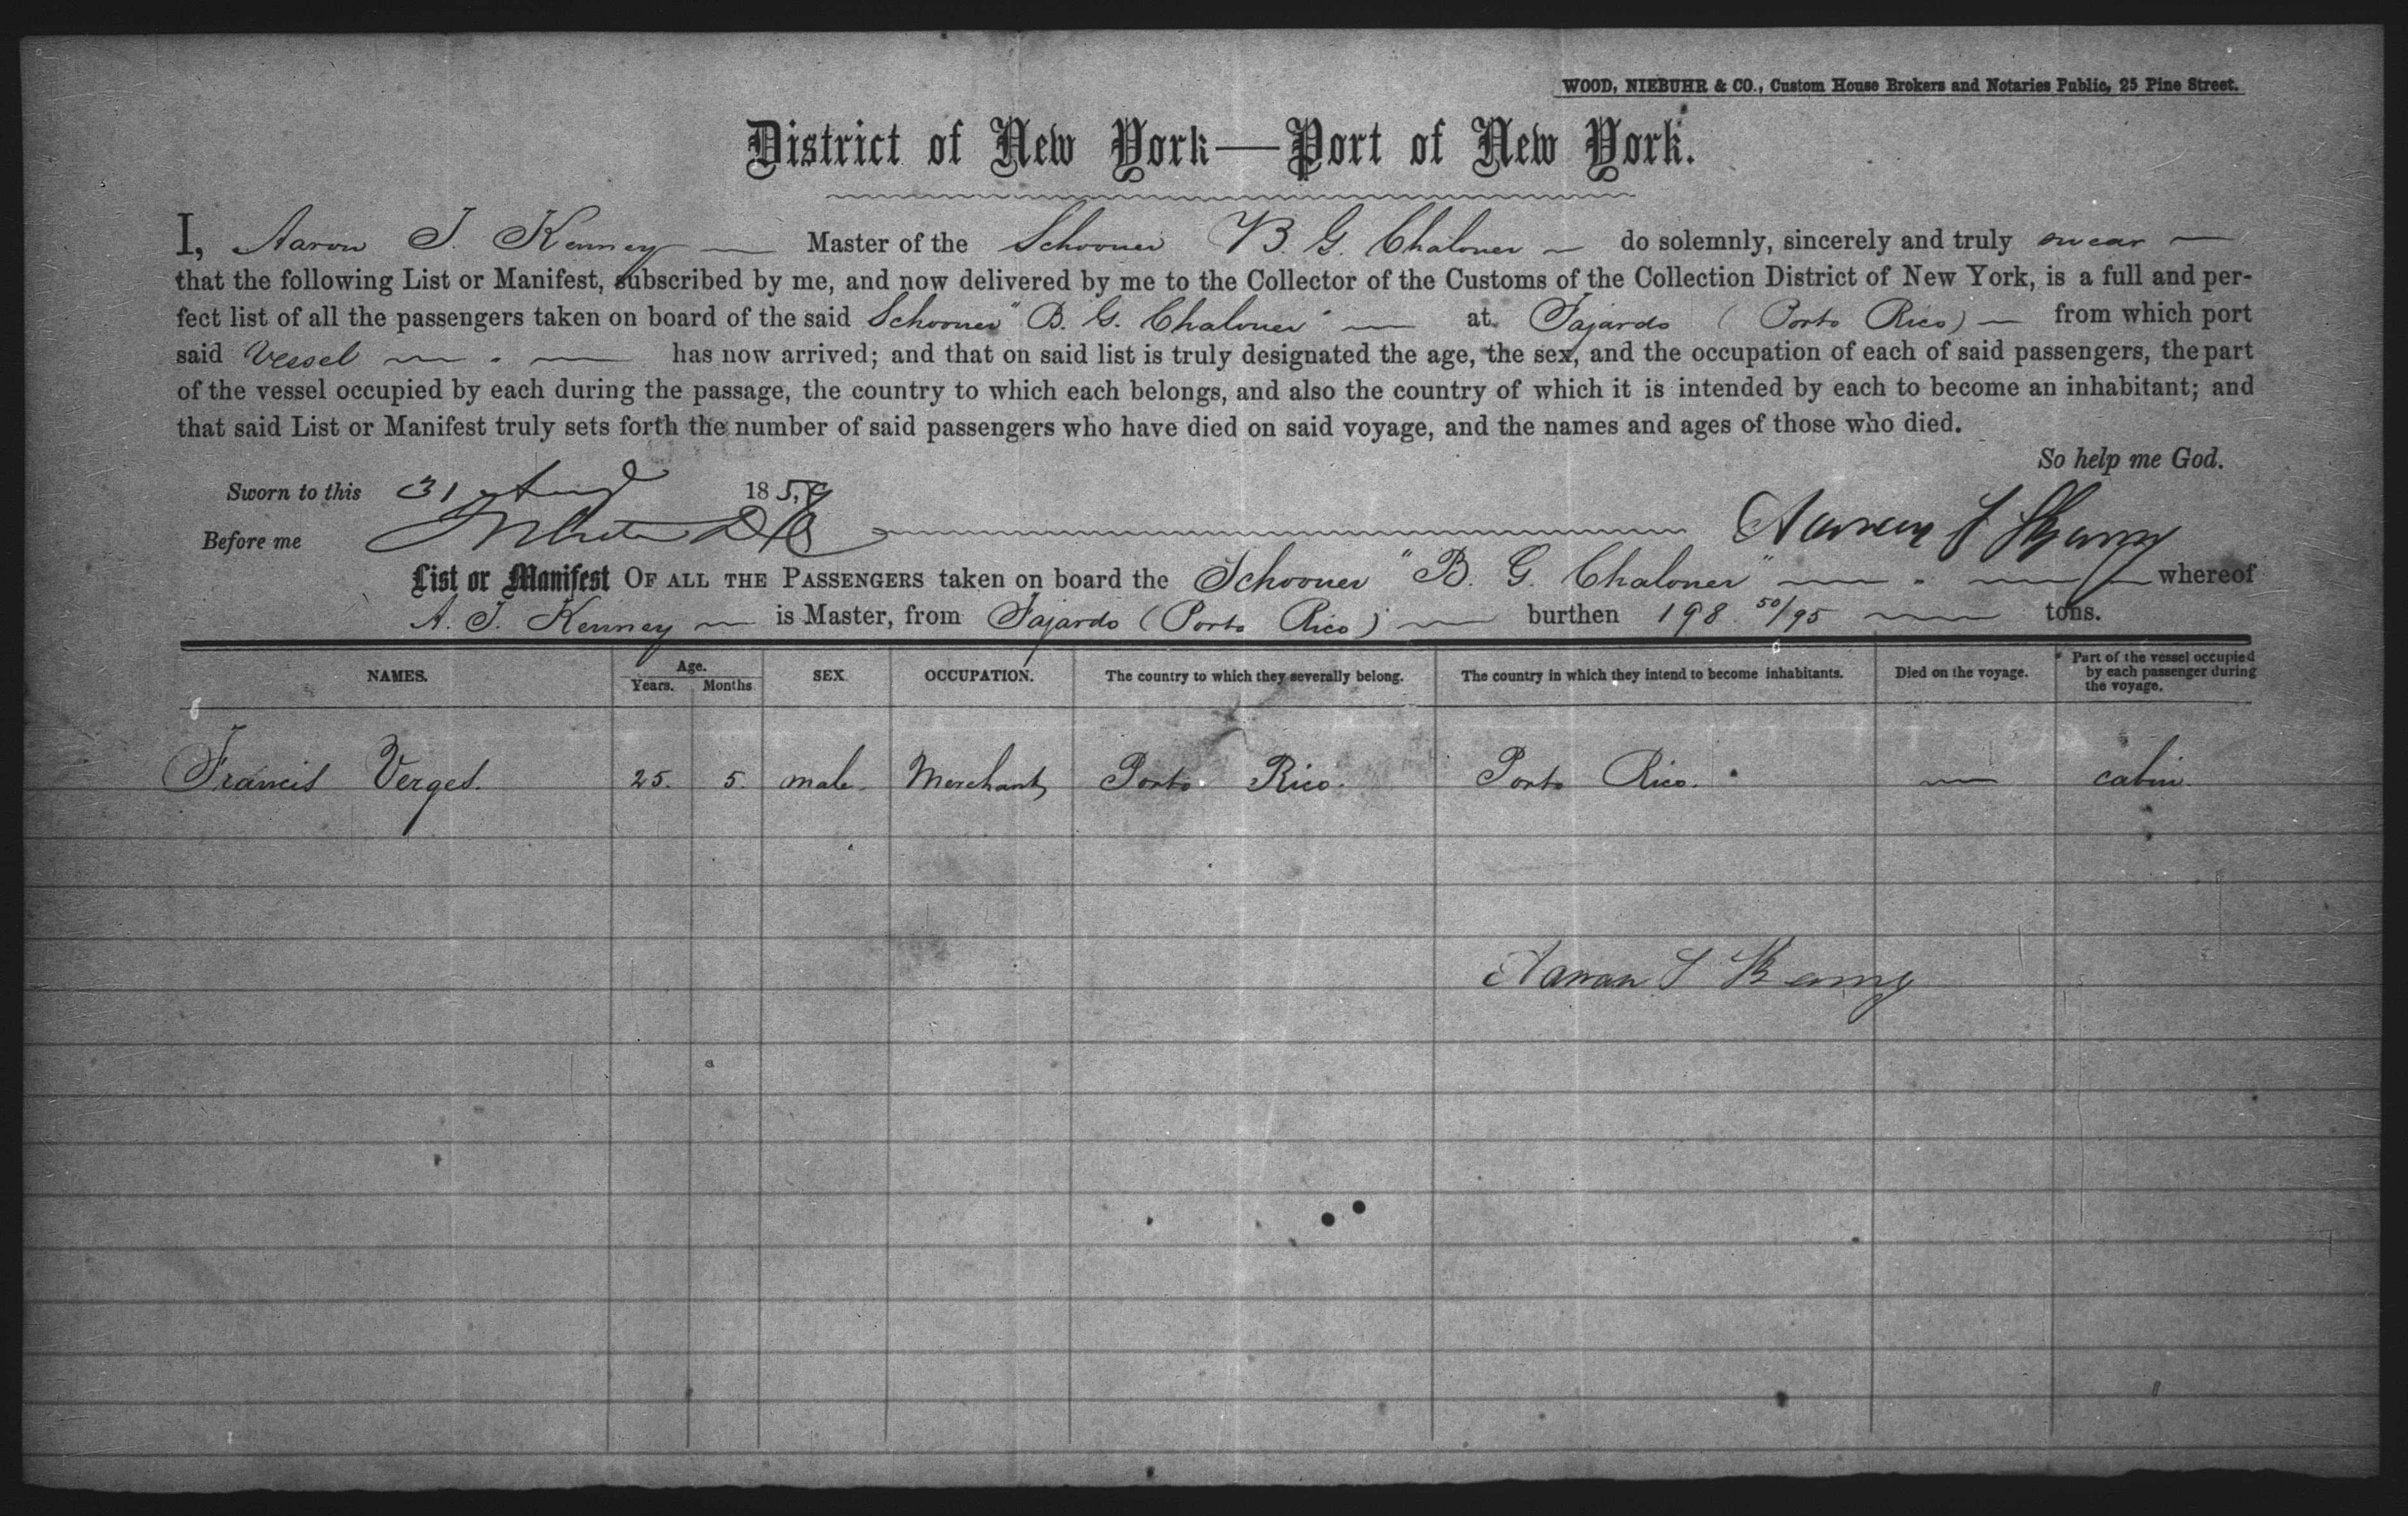 WOOD, NIEBUHR & CO., Custom House Brokers and Notaries Public, 25 Pine Street.
District of New York—Port of New York.
I, Aaron J. Kenney — Master of the Schooner B. G. Chaloner — do solemnly, sincerely and truly swear —
that the following List or Manifest, subscribed by me, and now delivered by me to the Collector of the Customs of the Collection District of New York, is a full and per-
fect list of all the passengers taken on board of the said Schooner "B. G. Chaloner" — at Fajardo (Porto Rico) — from which port
said Vessel — has now arrived; and that on said list is truly designated the age, the sex, and the occupation of each of said passengers, the part
of the vessel occupied by each during the passage, the country to which each belongs, and also the country of which it is intended by each to become an inhabitant; and
that said List or Manifest truly sets forth the number of said passengers who have died on said voyage, and the names and ages of those who died.
So help me God.
Sworn to this 31 Aug 1859
Before me
List or Manifest OF ALL THE PASSENGERS taken on board the Schooner "B. G. Chaloner" — whereof
A. J. Kenney — is Master, from Fajardo (Porto Rico) — burthen 198 50/95 — tons.
NAMES. Age. Years. Months SEX OCCUPATION. The country to which they severally belong. The country in which they intend to become inhabitants. Died on the voyage. Part of the vessel occupied by each passenger during the voyage.
Francis Verges. 25. 5. male. Merchant Porto Rico. Porto Rico. — cabin.